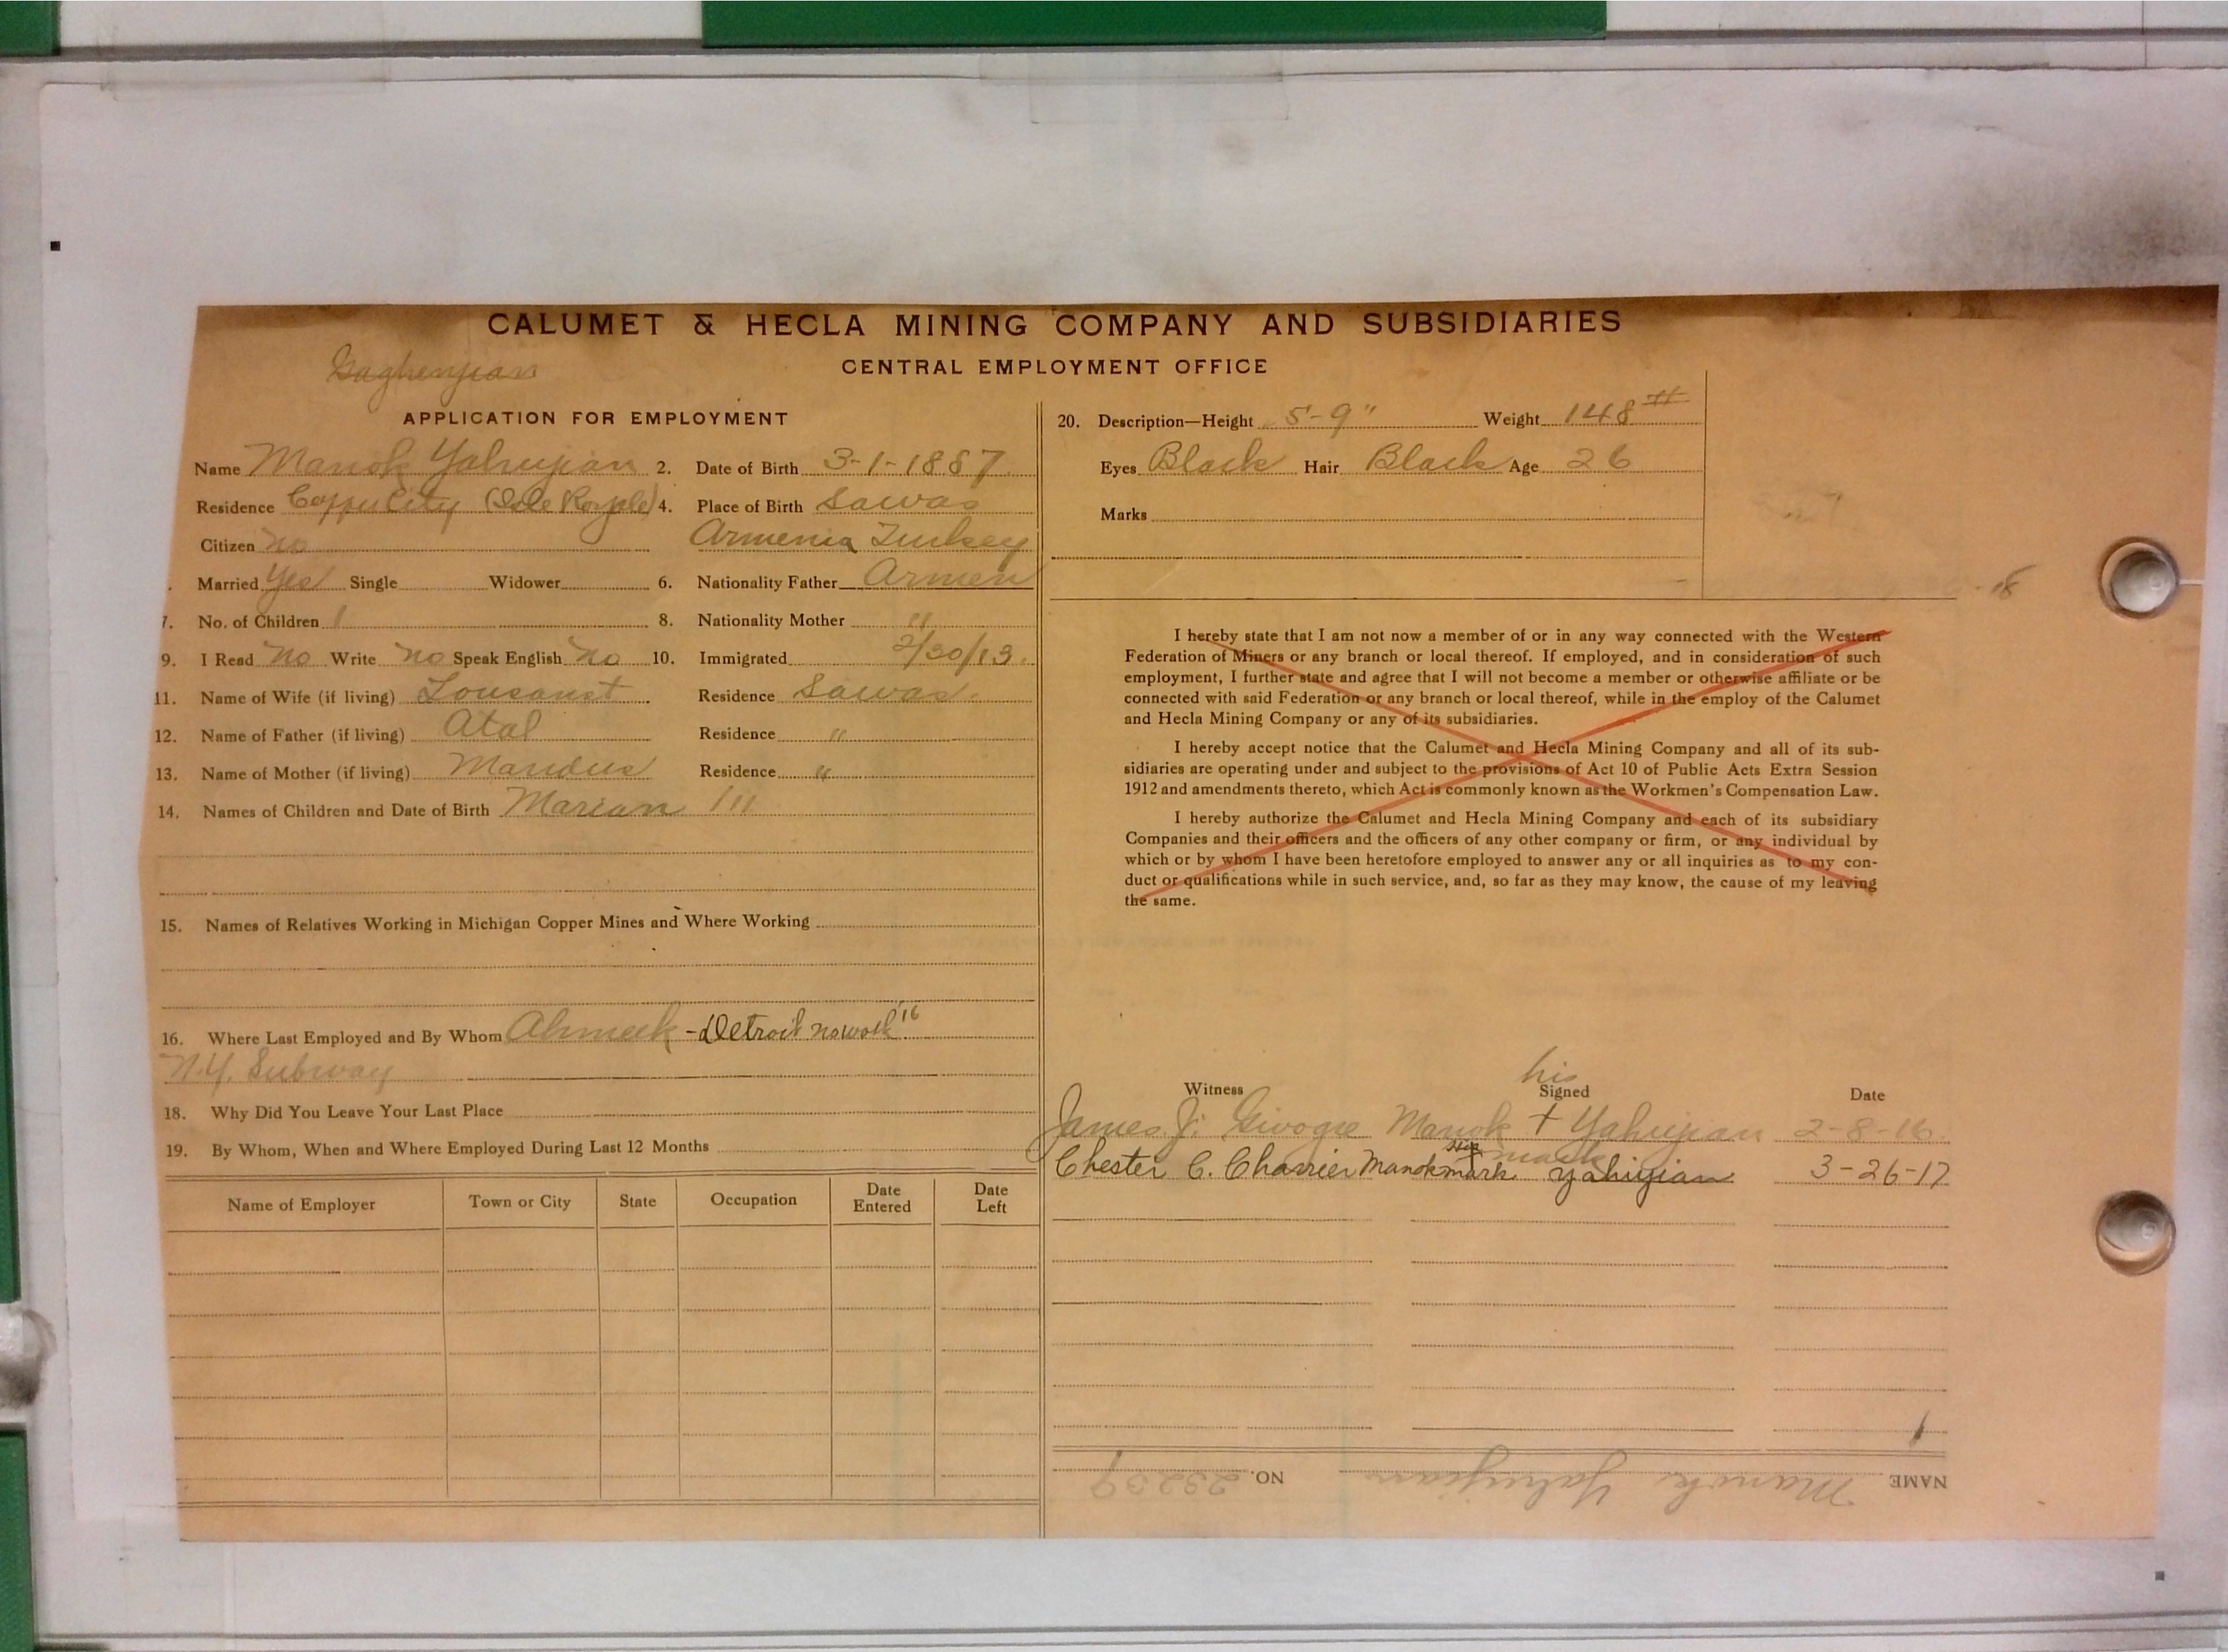 CALUMET & HECLA MINING COMPANY AND SUBSIDIARIES
CENTRAL EMPLOYMENT OFFICE
Gaghenjian
APPLICATION FOR EMPLOYMENT
Name Manok Yahujian 2. Date of Birth 3-1-1887
Residence Copper City (Isle Royale) 4. Place of Birth Sawas
Citizen no Armenia Turkey
Married Yes Single Widower 6. Nationality Father Armen
7. No. of Children 1 8. Nationality Mother "
9. I Read No Write No Speak English No 10. Immigrated 2/30/13.
11. Name of Wife (if living) Lousanst Residence Sawas.
12. Name of Father (if living) Atal Residence "
13. Name of Mother (if living) Mandus Residence "
14. Names of Children and Date of Birth Marian
15. Names of Relatives Working in Michigan Copper Mines and Where Working
16. Where Last Employed and By Whom Ahmeek - Detroit no work '16
N.Y. Subway
18. Why Did You Leave Your Last Place
19. By Whom, When and Where Employed During Last 12 Months
Name of Employer Town or City State Occupation Date Entered Date Left
20. Description—Height 5'-9" Weight 148 #
Eyes Black Hair Black Age 26
Marks
I hereby state that I am not now a member of or in any way connected with the Western
Federation of Miners or any branch or local thereof. If employed, and in consideration of such
employment, I further state and agree that I will not become a member or otherwise affiliate or be
connected with said Federation or any branch or local thereof, while in the employ of the Calumet
and Hecla Mining Company or any of its subsidiaries.
I hereby accept notice that the Calumet and Hecla Mining Company and all of its sub-
sidiaries are operating under and subject to the provisions of Act 10 of Public Acts Extra Session
1912 and amendments thereto, which Act is commonly known as the Workmen's Compensation Law.
I hereby authorize the Calumet and Hecla Mining Company and each of its subsidiary
Companies and their officers and the officers of any other company or firm, or any individual by
which or by whom I have been heretofore employed to answer any or all inquiries as to my con-
duct or qualifications while in such service, and, so far as they may know, the cause of my leaving
the same.
his
Witness Signed Date
James J. Givogre Manok + Yahujian 2-8-16.
mark
his
Chester C. Charrier Manok mark Yahujian 3-26-17
NAME Manok Yahujian NO. 23239